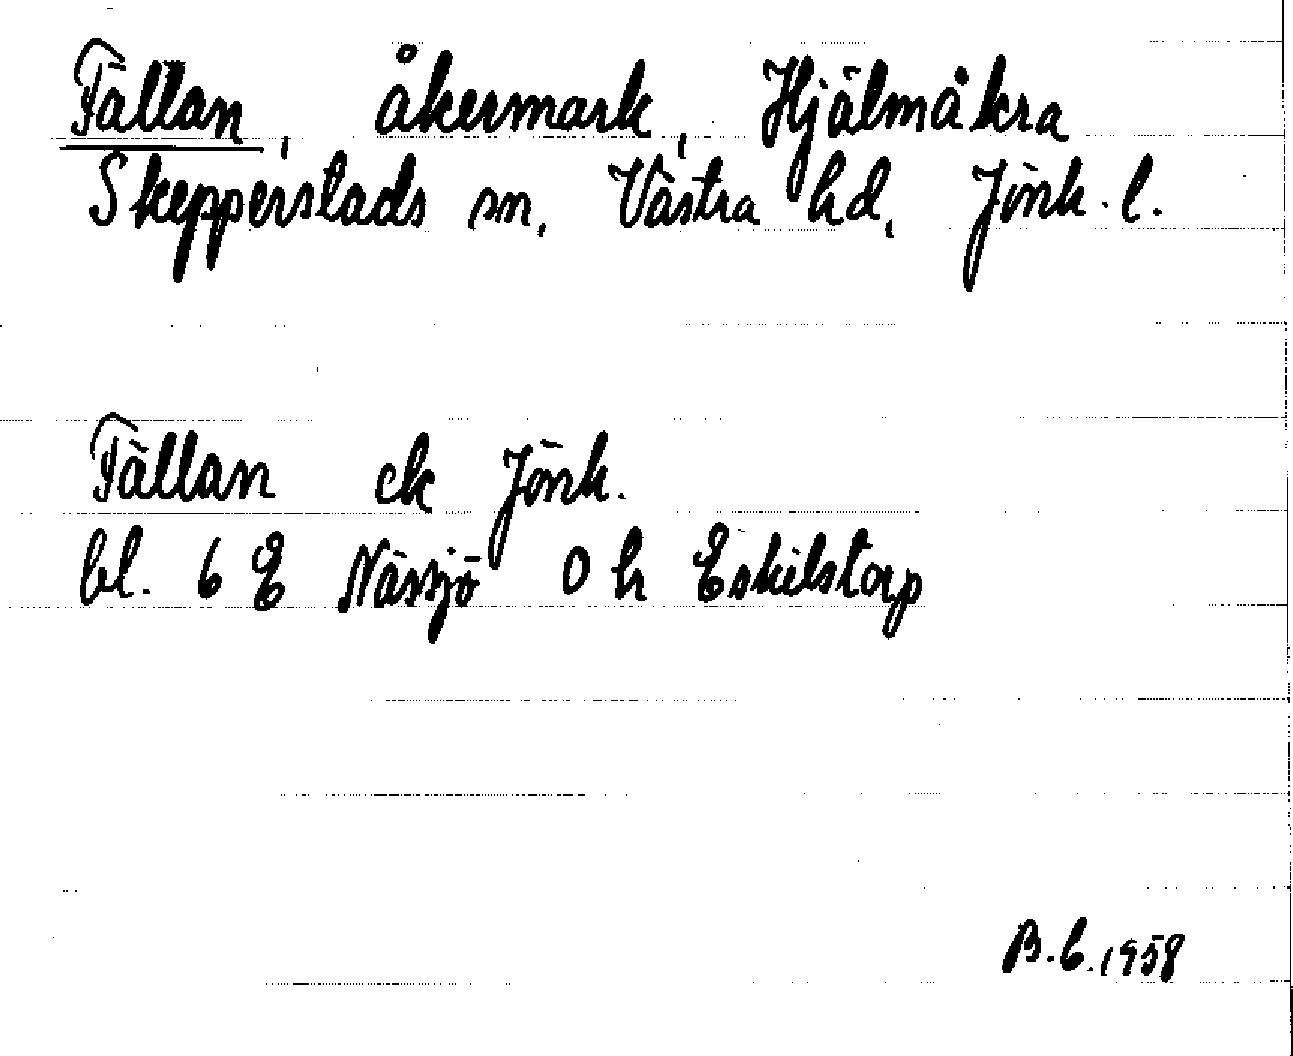 Fällan, åkermark, Hjälmåkra
Skepperstads sn, Västra hd, Jönk. l.
Fällan ek Jönk.
bl. 6 E Nässjö 0 h Eskilstorp
B.C. 1958